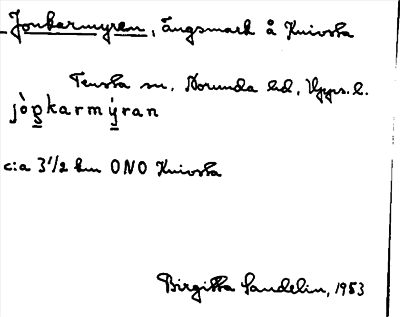 Jonkarmyren, Ängsmark å Knivsta
Tensta sn, Norunda hd, Upps. l.
jòŋkarmý̱ran
c:a 3 1/2 km ONO Knivsta
Birgitta Sandelin, 1953